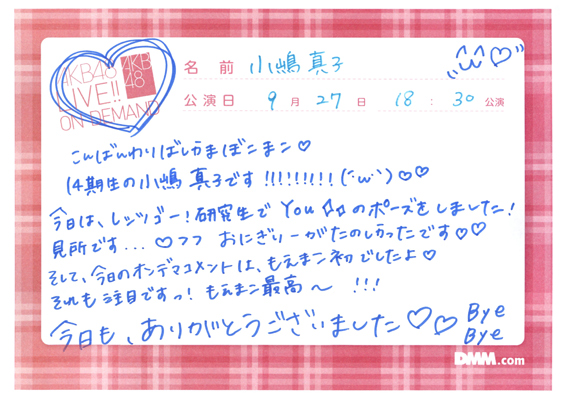 AKB48
LIVE!!
ON DEMAND
AKB
48
名前 小嶋真子
公演日 9月27日 18:30公演
こんばんわりばしかまぼこまこ♡
14期生の小嶋真子です!!!!!!!!!(´・ω・`)♡♡
今日は、レッツゴー!研究生で You☆☆のポーズをしました!
見所です...♡フフ おにぎりーがたのしかったです♡♡
そして、今日のオンデマコメントは、もえまこ初でしたよ♡
それも注目ですっ!もえまこ最高〜 !!!
今日も、ありがとうございました♡♡
Bye
Bye
DMM.com